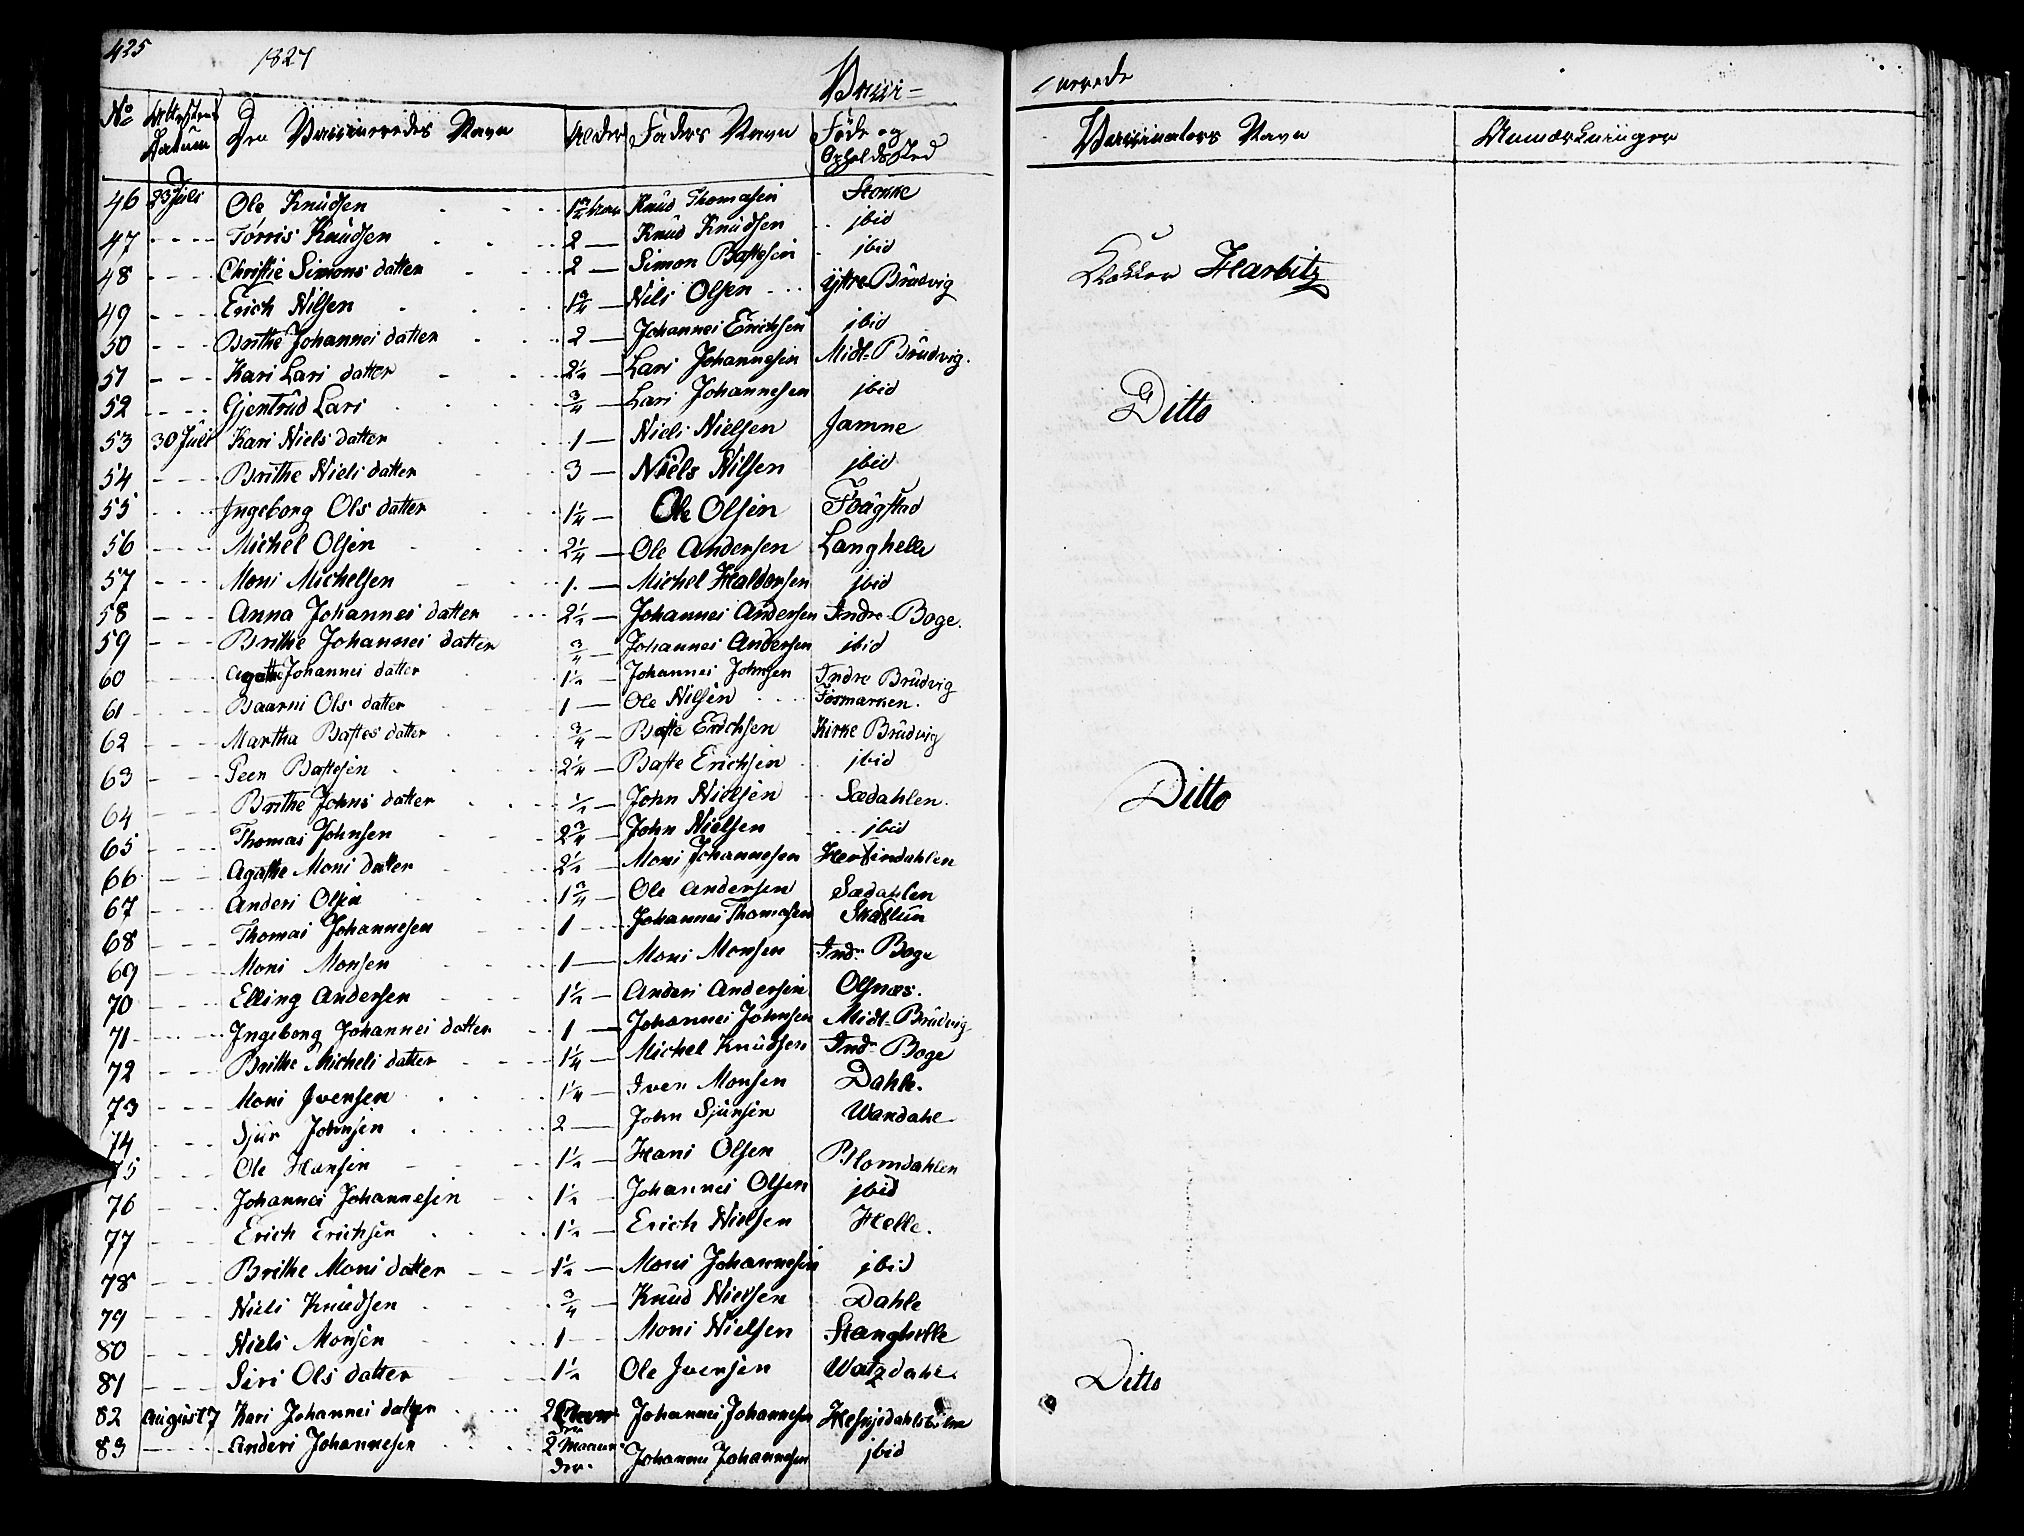 425 1827 Vacci= nerede
No Attestens Datum Den Vaccineredes Navn Alder Faders Navn Føde og Opholds Sted Vaccinateurs Navn Anmærkninger
46 23 Juli Ole Knudsen Knud Thomasen Stokke
47 Tørris Knudsen 2 Knud Knudsen ibid
48 Christie Simons datter 2 Simon Bastesen ibid Klokker Harbitz
49 Erich Nilsen Nils Olsen Yttre Brudvig
50 Brithe Johannes datter 2 Johannes Erichsen ibid
51 Kari Lars datter 2½ Lars Johannesen Midt-Brudvig.
52 Gjertrud Lars ¾ Lars Johannesen ibid Ditto
53 30 Juli Kari Niels datter 1 Niels Nielsen Jamne
54 Brithe Niels datter 3 Niels Nilsen ibid
55 Ingeborg Ols datter 1¼ Ole Olsen
56 Michel Olsen 2¼ Ole Andersen Langhelle
57 Mons Michelsen 1. Michel Haldorsen ibid
58 Anna Johannes datter 2½ Johannes Andersen Indre Boge.
59 Brithe Johannes datter ¾ Johannes Andersen ibid
60 Agathe Johannes datter 1½ Johannes Johnsen Indre Brudvig
61 Baarni Ols datter 1 Ole Nilsen Fosmarken.
62 Martha Bastes datter ¾ Baste Erichsen Kirke Brudvig
63 Peer Bastesen 2¼ Baste Erichsen ibid
64 Brithe Johns datter ½ John Nielsen Sædahlen. Ditto
65 Thomas Johnsen 2¾ John Nielsen ibid
66 Agathe Mons datter 2½ Mons Johannesen Herfindahlen
67 Anders Olsen 1¾ Ole Andersen Sædahlen
68 Thomas Johannesen 1 Johannes Thomasen Skaflun
69 Mons Monsen 1 Mons Monsen Ind: Boge
70 Elling Andersen 1½ Anders Andersen Olsnæs.
71 Ingeborg Johannes datter 1 Johannes Johnsen Midt-Brudvig
72 Brithe Michels datter 1¼ Michel Knudsen Ind: Boge
73 Mons Iversen 1¼ Iver Monsen Dahle.
74 Sjur Johnsen 2 John Sjursen Wandahl
75 Ole Hansen 1½ Hans Olsen Blomdahlen
76 Johannes Johannesen 1½ Johannes Olsen ibid
77 Erich Erichsen 1½ Erich Nielsen Helle.
78 Brithe Mons datter 1½ Mons Johannesen ibid
79 Niels Knudsen ¾ Knud Nielsen Dahle
80 Niels Monsen 1 Mons Nielsen Stanghelle
81 Siri Ols datter 1½ Ole Iversen Watzdahl Ditto
82 August 7 Kari Johannes datter 2 Johannes Johannesen
83 Anders Johannesen 2 Maaneder. Johannes Johannesen ibid